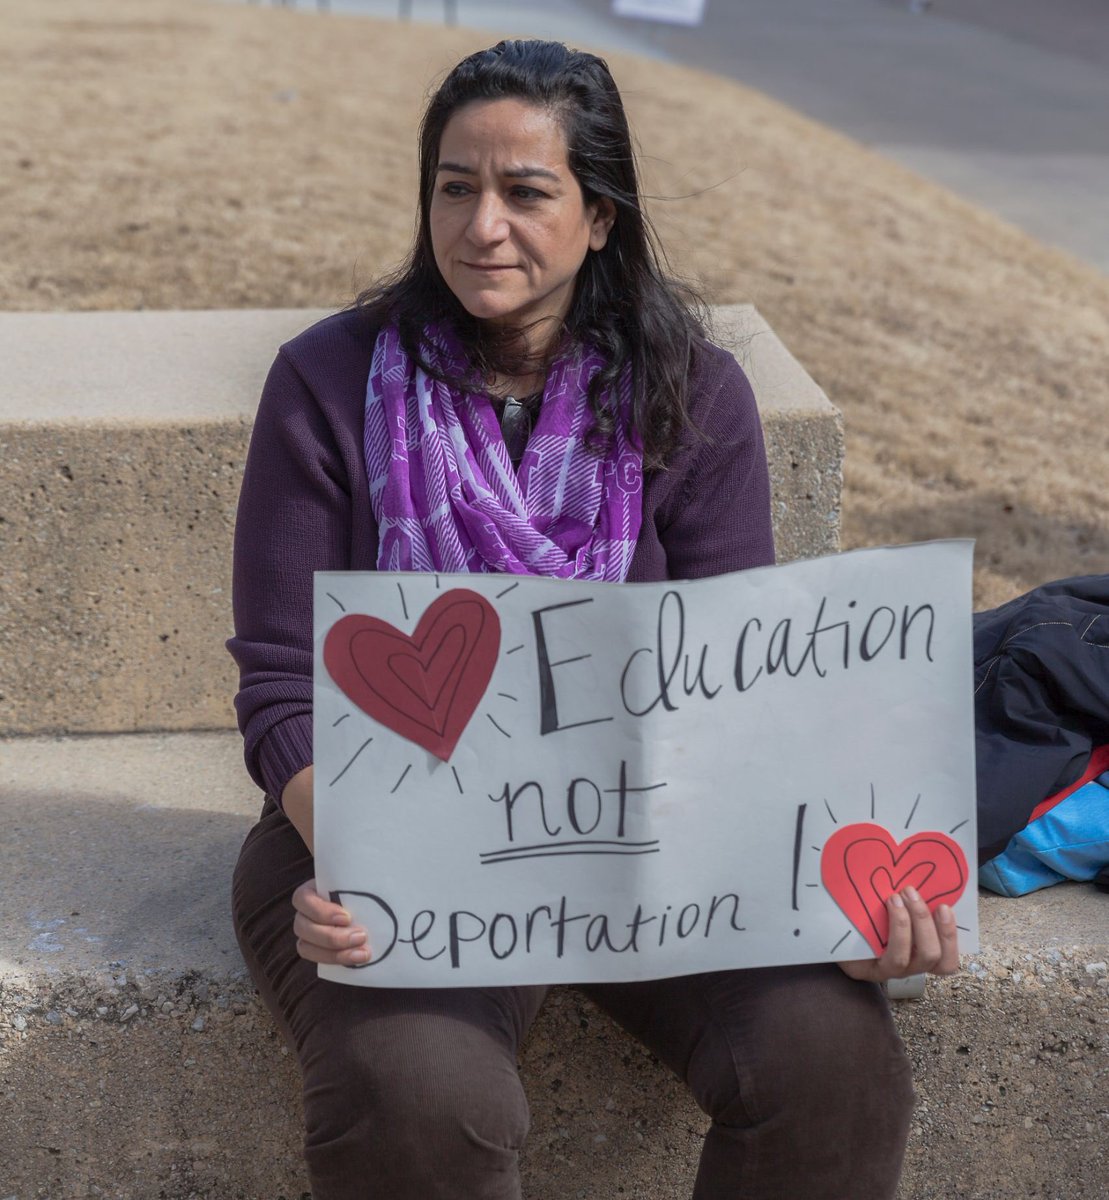 Education
not
Deportation !